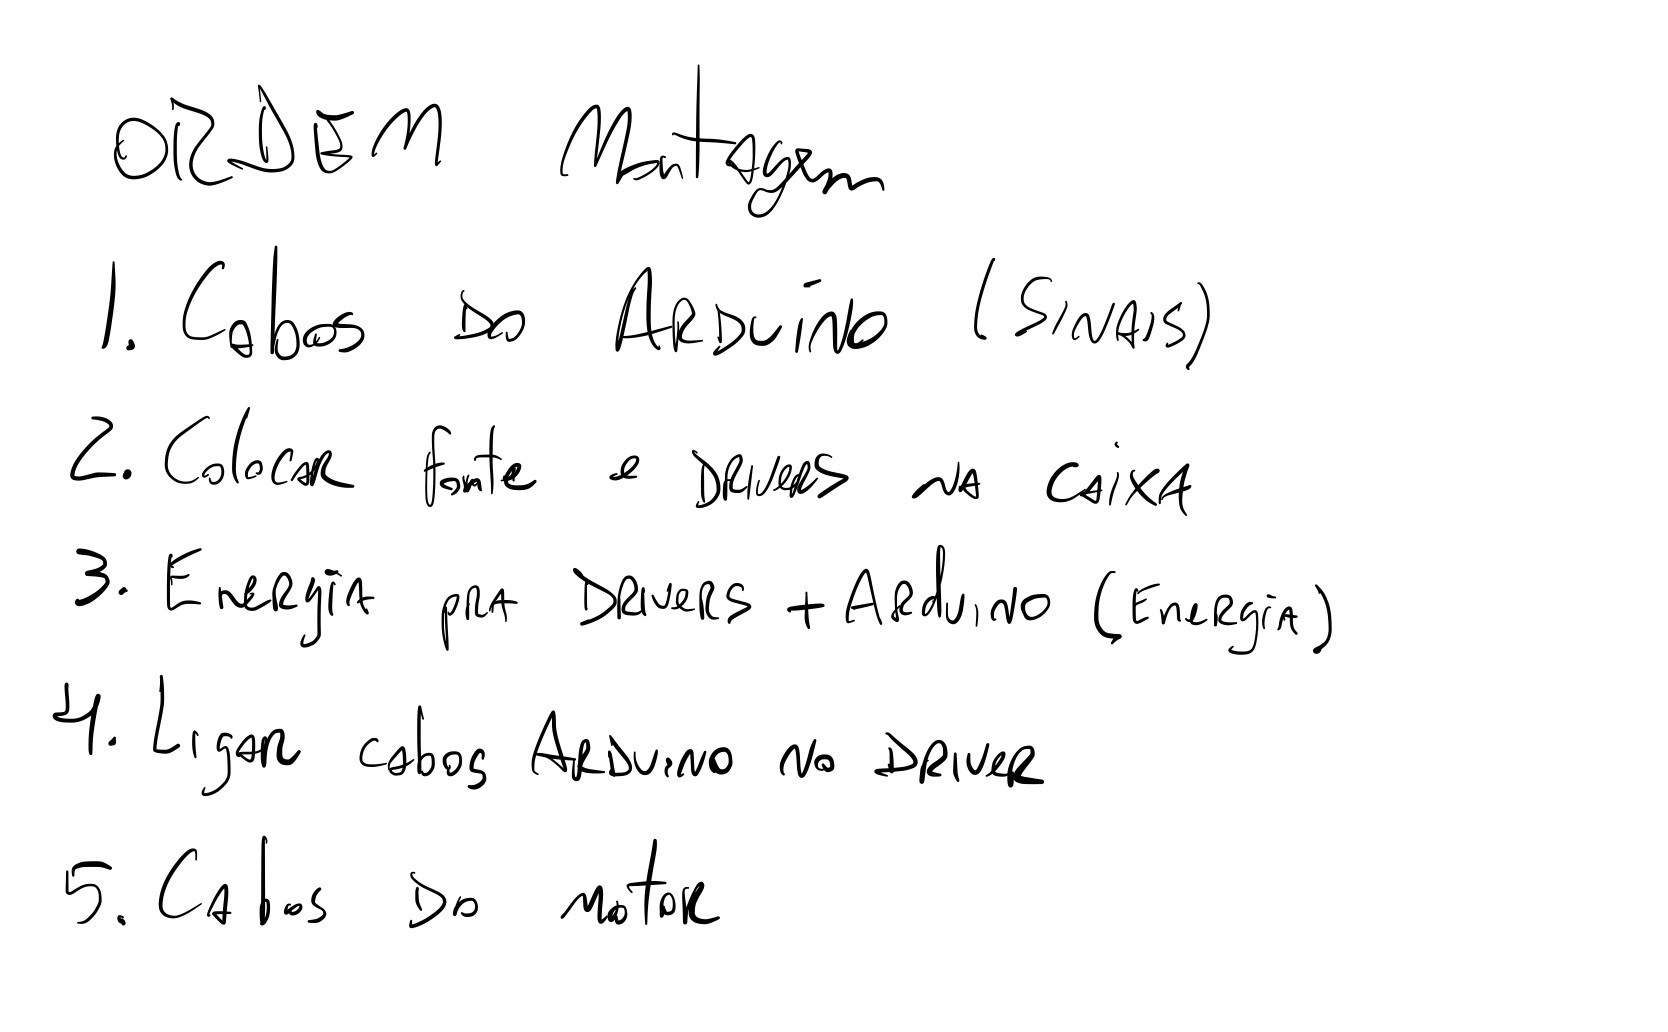 ORDEM Montagem
1. Cabos do Arduino (Sinais)
2. Colocar fonte e Drivers na caixa
3. Energia pra Drivers + Arduino (Energia)
4. Ligar cabos Arduino no Driver
5. Cabos do motor